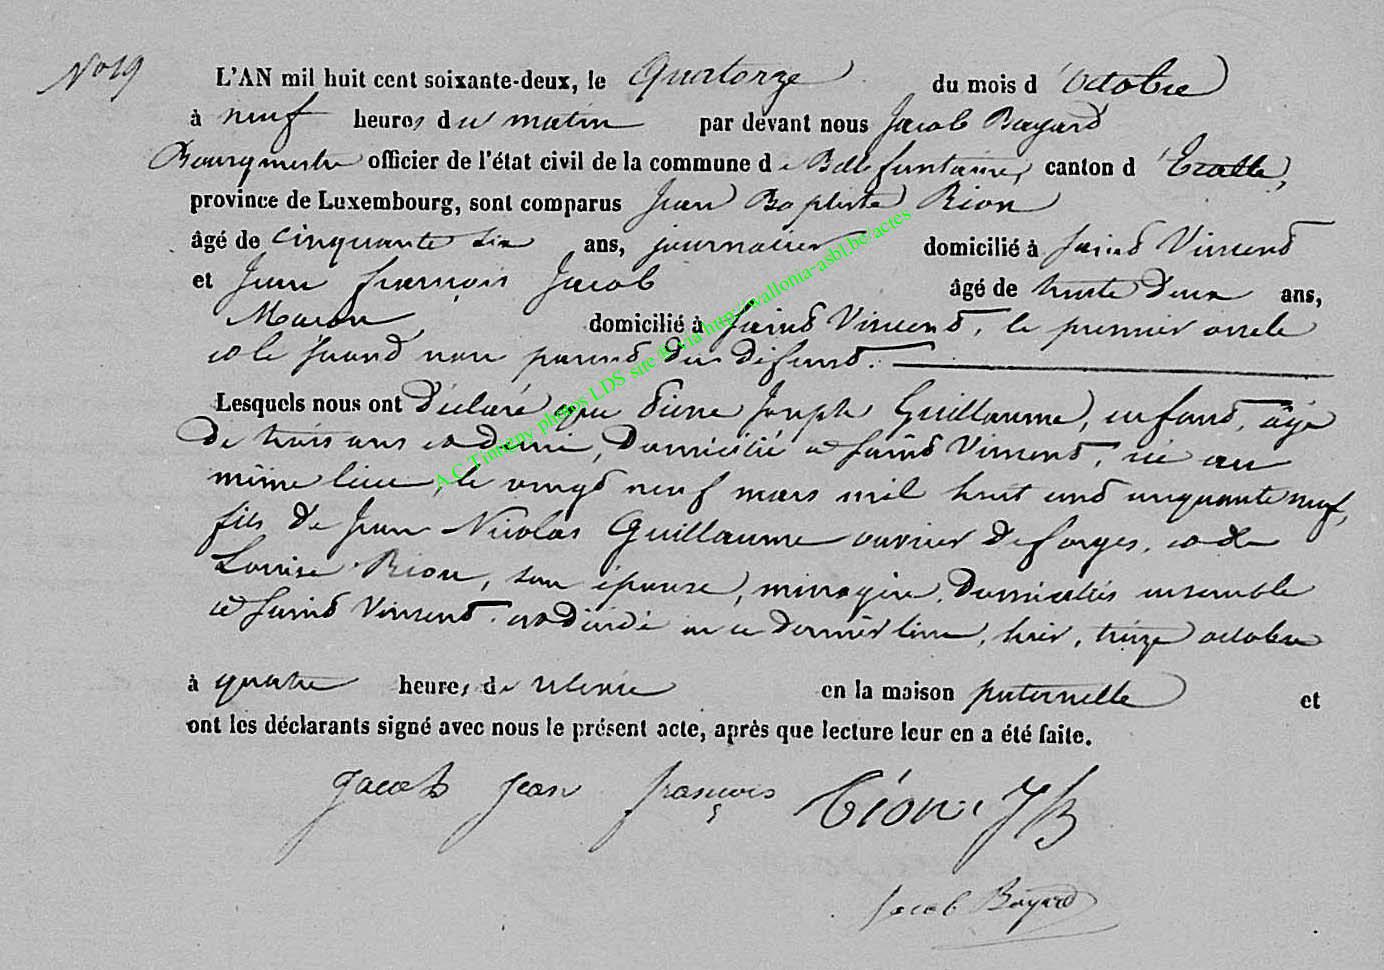 N° 19
L'AN mil huit cent soixante-deux, le Quatorze du mois d'Octobre
à neuf heures du matin par devant nous Jacob Bayard
Bourgmestre officier de l'état civil de la commune de Bellefontaine, canton d'Etalle,
province de Luxembourg, sont comparus Jean Baptiste Rion
âgé de cinquante six ans, journalier domicilié à Saint Vincent
et Jean françois Jacob âgé de trente deux ans,
Macon, domicilié à Saint Vincent, le premier oncle
et le second non parent du défunt.
Lesquels nous ont Déclaré que Pierre Joseph Guillaume, enfant, âgé
de trois ans et demi, Domicilié à Saint Vincent, né au
même lieu, le vingt neuf mars mil huit cent cinquante neuf,
fils de Jean Nicolas Guillaume ouvrier de forges, et de
Louise Rion, son épouse, ménagère, Domiciliés ensemble
à Saint Vincent, est décédé en ce dernier lieu, hier, treize octobre
à quatre heures de relevée en la maison paternelle et
ont les déclarants signé avec nous le présent acte, après que lecture leur en a été faite.
Jacob Jean françois Rion JB
Jacob Bayard
A.C Tintigny photos LDS site via http://wallonia-asbl.be/actes